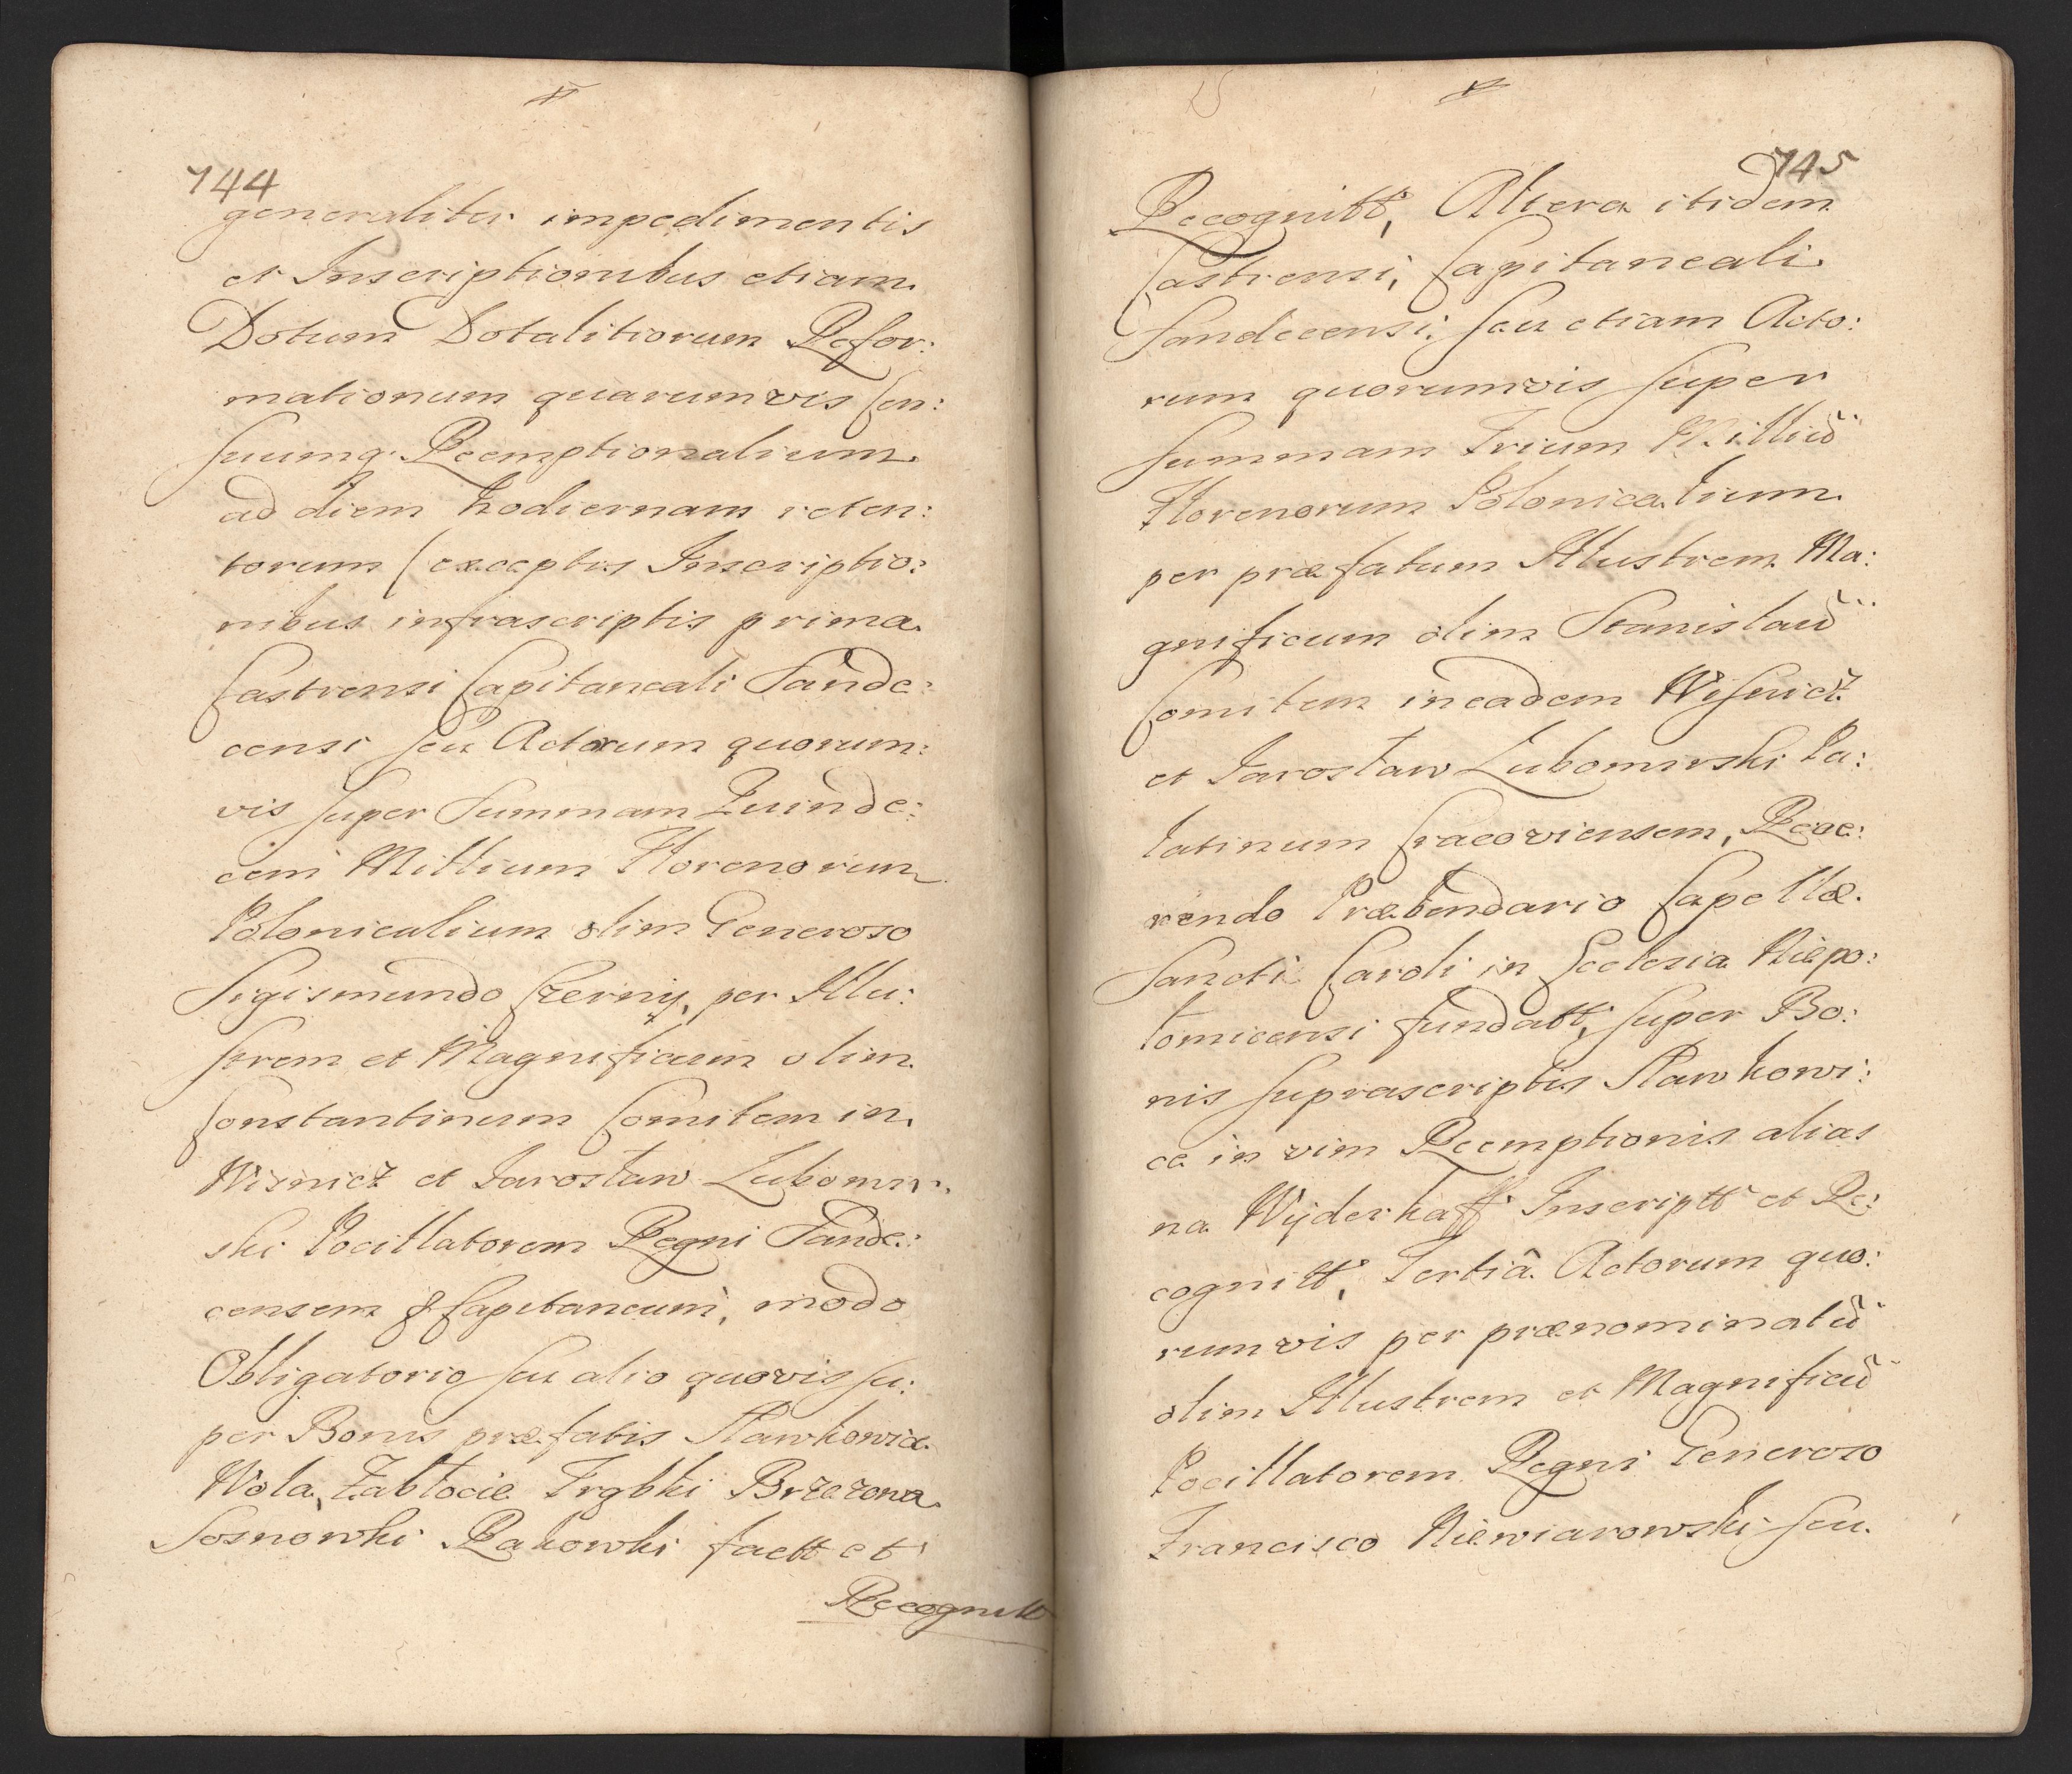 744
generaliter impedimentis
et Inscriptionibus etiam
Dotum Dotalitiorum Refor:
mationum quarumvis Cen:
suumq. Reemptionalium
ad diem hodiernam reten:
torum (exceptis Inscriptio:
nibus infrascriptis prima
Castrensi Capitaneali Sande:
censi seu Actorum quorum:
vis super Summam Quinde:
cem Millium Florenorum
Polonicalium olim Generoso
Sigismundo Czerny, per Illu:
strem et Magnificum olim
Constantinum Comitem in
Wisnicz et Jarosław Lubomir:
ski Pocillatorem Regni Sande:
censem Capitaneum, modo
Obligatorio seu alio quovis su:
per Bonis præfatis Sławkowice
Wola, Zabłocie Trąbki Brzezowa
Sosnowki Rakowki factt et
Recognitt
745
Recognitt, Altera itidem
Castrensi, Capitaneali
Sandecensi, seu etiam Acto:
rum quorumvis super
summam Trium Milliũ
Florenorum Polonicalium
per præfatum Illustrem Ma:
gnificum olim Stanislaũ
Comitem in eadem Wisnicz
et Jarosław Lubomirski Pa:
latinum Cracoviensem, Reve:
rendo Præbendario Capellæ
Sancti Caroli in Ecclesia Niepo:
łomicensi fundatt, super Bo:
nis suprascriptis Sławkowi:
ce in vim Reemptionis alias
na Wyderkaff Inscriptt et Re:
cognitt, Tertiâ Actorum quo:
rumvis per prænominatũ
olim Illustrem et Magnificũ
Pocillatorem Regni Generoso
Francisco Niewiarowski seu